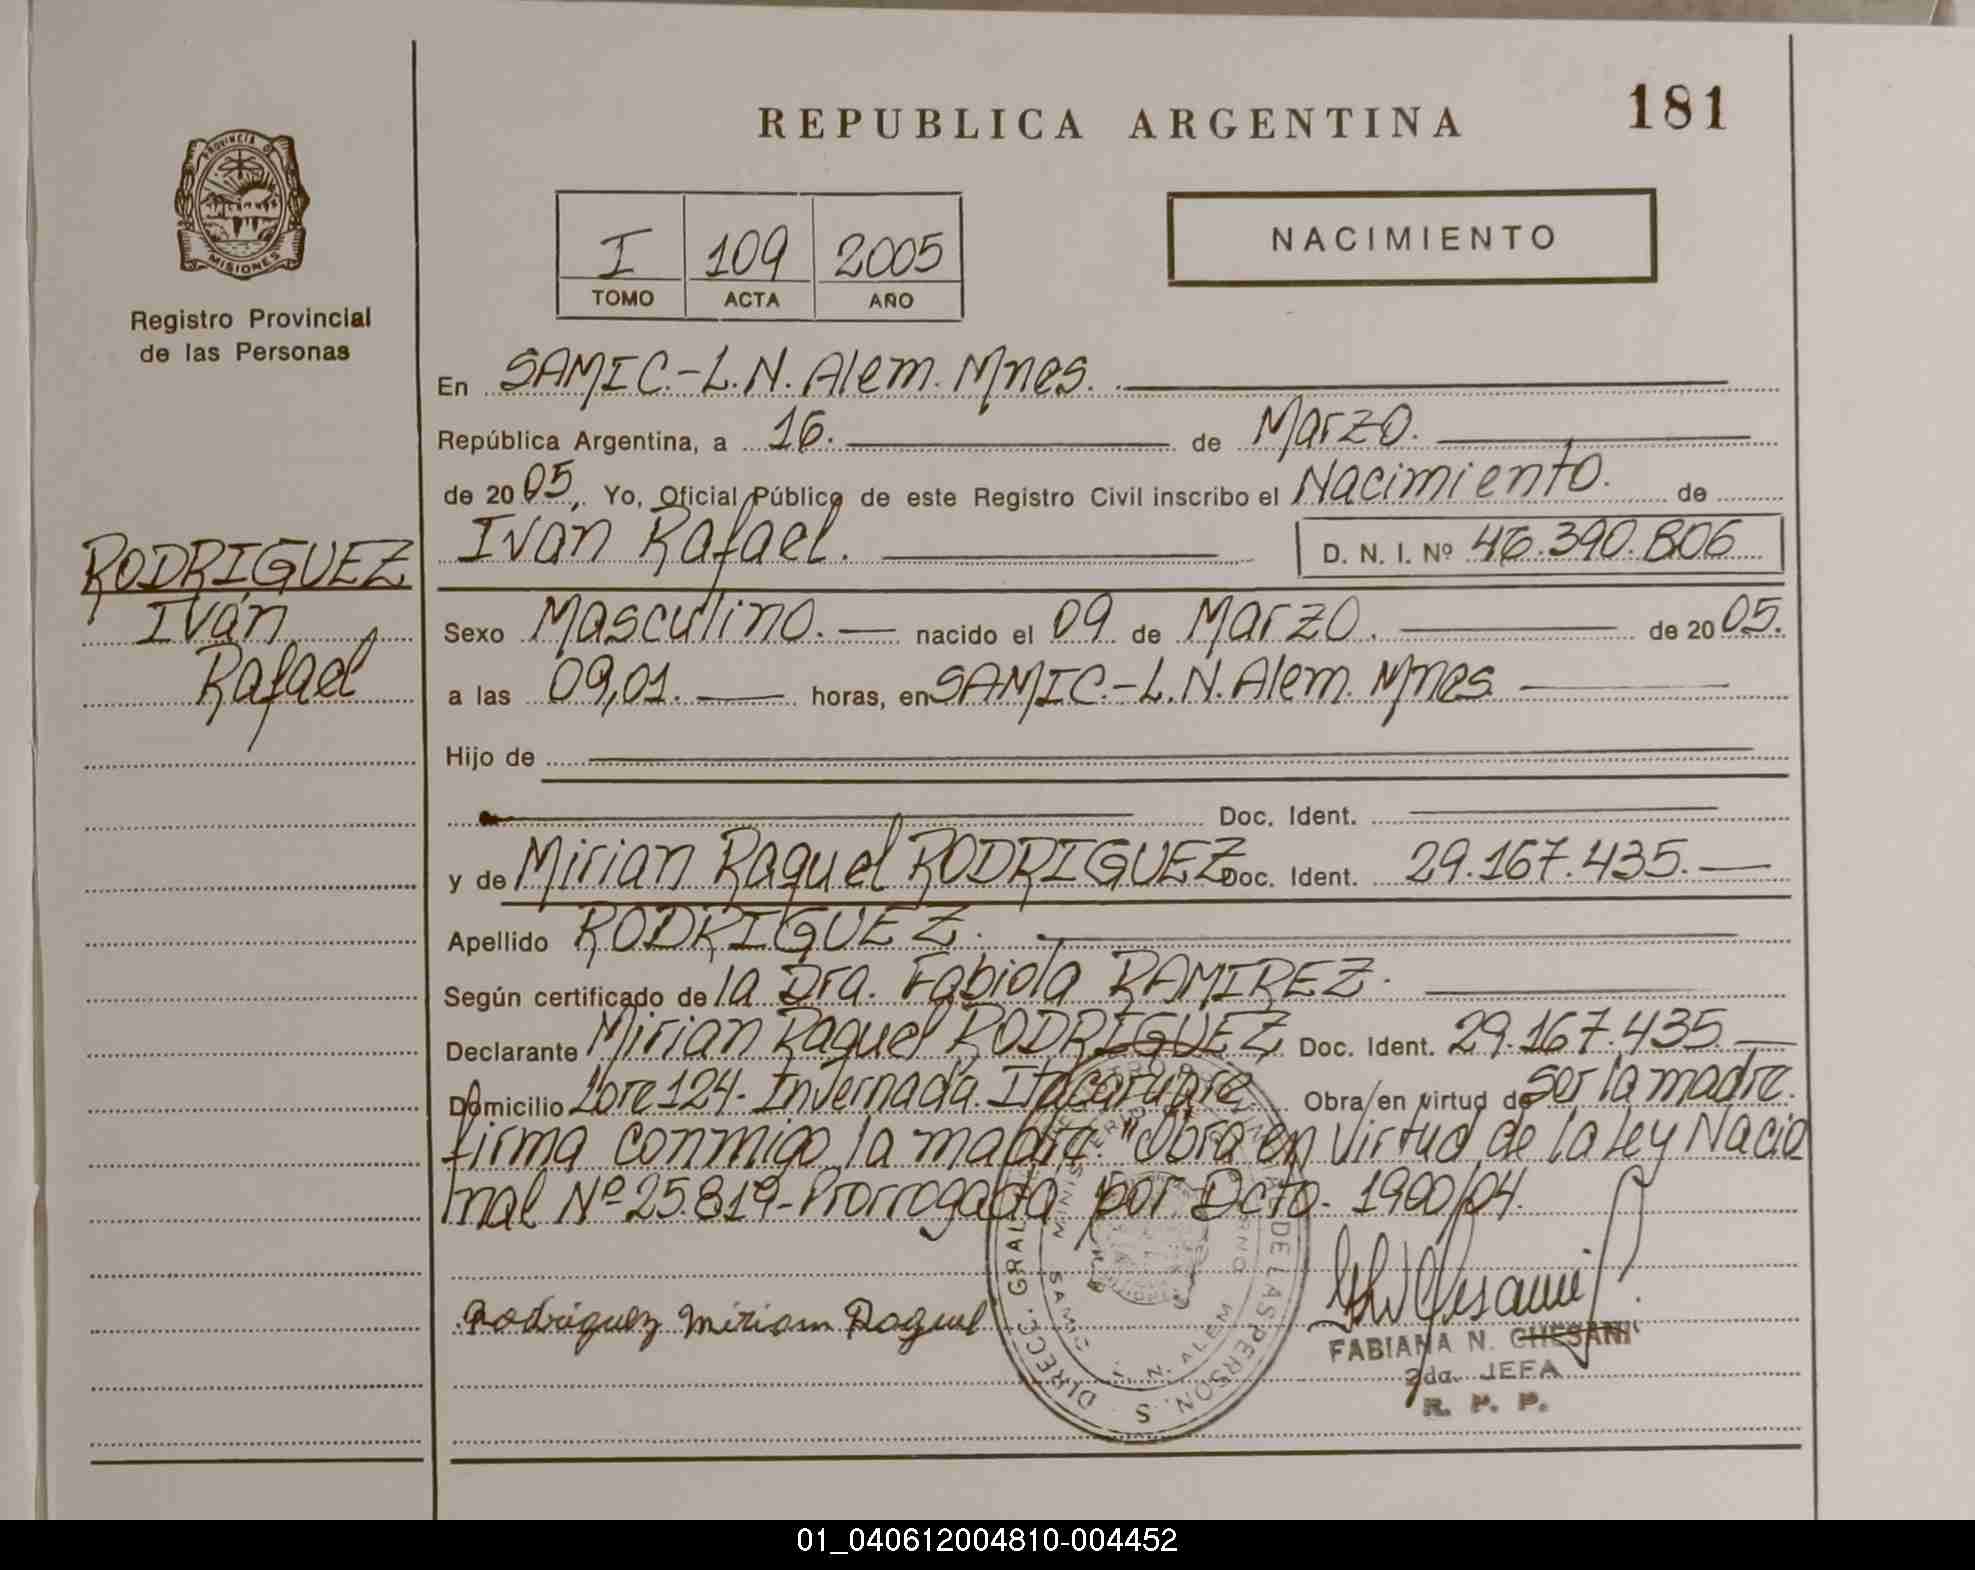 REPUBLICA ARGENTINA
181
PROVINCIA DE
MISIONES
Registro Provincial
de las Personas
I 109 2005
TOMO ACTA AÑO
NACIMIENTO
En SAMIC.-L.N. Alem. Mnes.
República Argentina, a 16. de Marzo.
de 2005. Yo, Oficial Público de este Registro Civil inscribo el Nacimiento. de
Iván Rafael.
D. N. I. Nº 46.390.806
RODRIGUEZ
Iván
Rafael
Sexo Masculino. nacido el 09 de Marzo. de 2005.
a las 09,01. horas, en SAMIC.-L.N. Alem. Mnes
Hijo de
Doc. Ident.
y de Mirian Raquel RODRIGUEZ Doc. Ident. 29.167.435.
Apellido RODRIGUEZ.
Según certificado de la Dra. Fabiola RAMIREZ.
Declarante Mirian Raquel RODRIGUEZ Doc. Ident. 29.167.435
Domicilio Lote 124- Invernada Itacaruare. Obra en virtud de ser la madre.
firma conmigo la madre. "Obra en Virtud de la Ley Nacio
nal Nº 25.819-Prorrogada por Dcto. 1900/04.
Rodriguez Miriam Raquel
DIRECC. GRAL. DE LAS PERSON. S
SAMIC L. N. ALEM
FABIANA N. CHESANI
2da. JEFA
R. P. P.
01_040612004810-004452